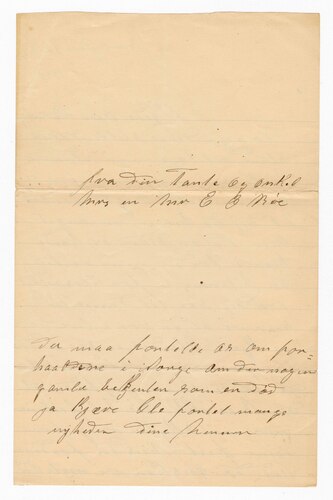 fra din Tante og onkel
Mrs en Mr E E Röe
Du maa fortelde os om for=
haaldene i Norge om der nogen
gamle bekjenter som er död
ja Kjære Ole fortel mange
nyheder dine